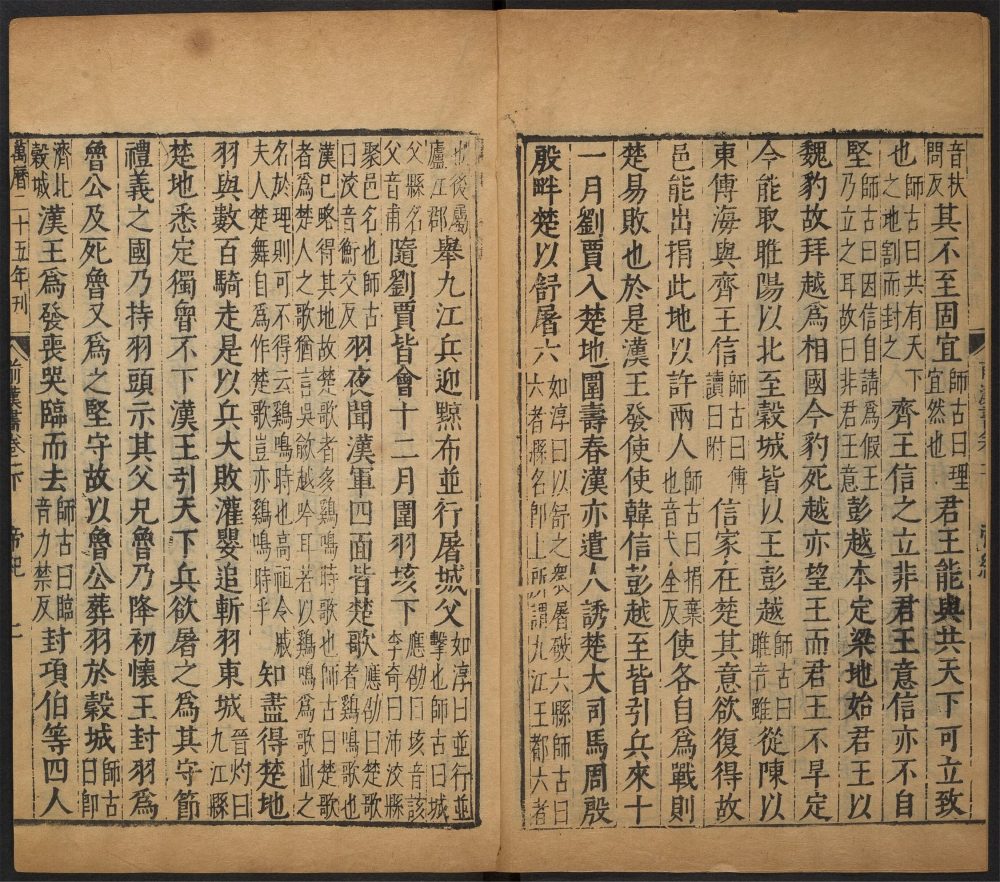 音扶問反其不至固宜師古曰理宜然也君王能與共天下可立致
也師古曰共有天下之地割而封之齊王信之立非君王意信亦不自
堅師古曰因信自請為假王乃立之耳故曰非君王意彭越本定梁地始君王以
魏豹故拜越為相國今豹死越亦望王而君王不早定
今能取睢陽以北至穀城皆以王彭越師古曰睢音雖從陳以
東傅海與齊王信師古曰傅讀曰附信家在楚其意欲復得故
邑能出捐此地以許兩人師古曰捐棄也音弋全反使各自為戰則
楚易敗也於是漢王發使使韓信彭越至皆引兵來十
一月劉賈入楚地圍壽春漢亦遣人誘楚大司馬周殷
殷畔楚以舒屠六如淳曰以舒之衆屠破六縣師古曰六者縣名即上所謂九江王都六者
後屬廬江郡舉九江兵迎黥布並行屠城父如淳曰並行並擊也師古曰城
父縣名父音甫隨劉賈皆會十二月圍羽垓下應劭曰垓音該李奇曰沛洨縣
聚邑名也師古曰洨音衡交反羽夜聞漢軍四面皆楚歌應劭曰楚歌者雞鳴歌也
漢已略得其地故楚歌者多雞鳴時歌也師古曰楚歌者為楚人之歌猶言吳歈越吟耳若以雞鳴為歌曲之
名於理則可不得云雞鳴時也高祖令戚夫人楚舞自為作楚歌豈亦雞鳴時乎知盡得楚地
羽與數百騎走是以兵大敗灌嬰追斬羽東城晉灼曰九江縣
楚地悉定獨魯不下漢王引天下兵欲屠之為其守節
禮義之國乃持羽頭示其父兄魯乃降初懷王封羽為
魯公及死魯又為之堅守故以魯公葬羽於穀城師古曰即
濟北穀城漢王為發喪哭臨而去師古曰臨音力禁反封項伯等四人
萬曆二十五年刊
前漢書卷一下 帝紀 二